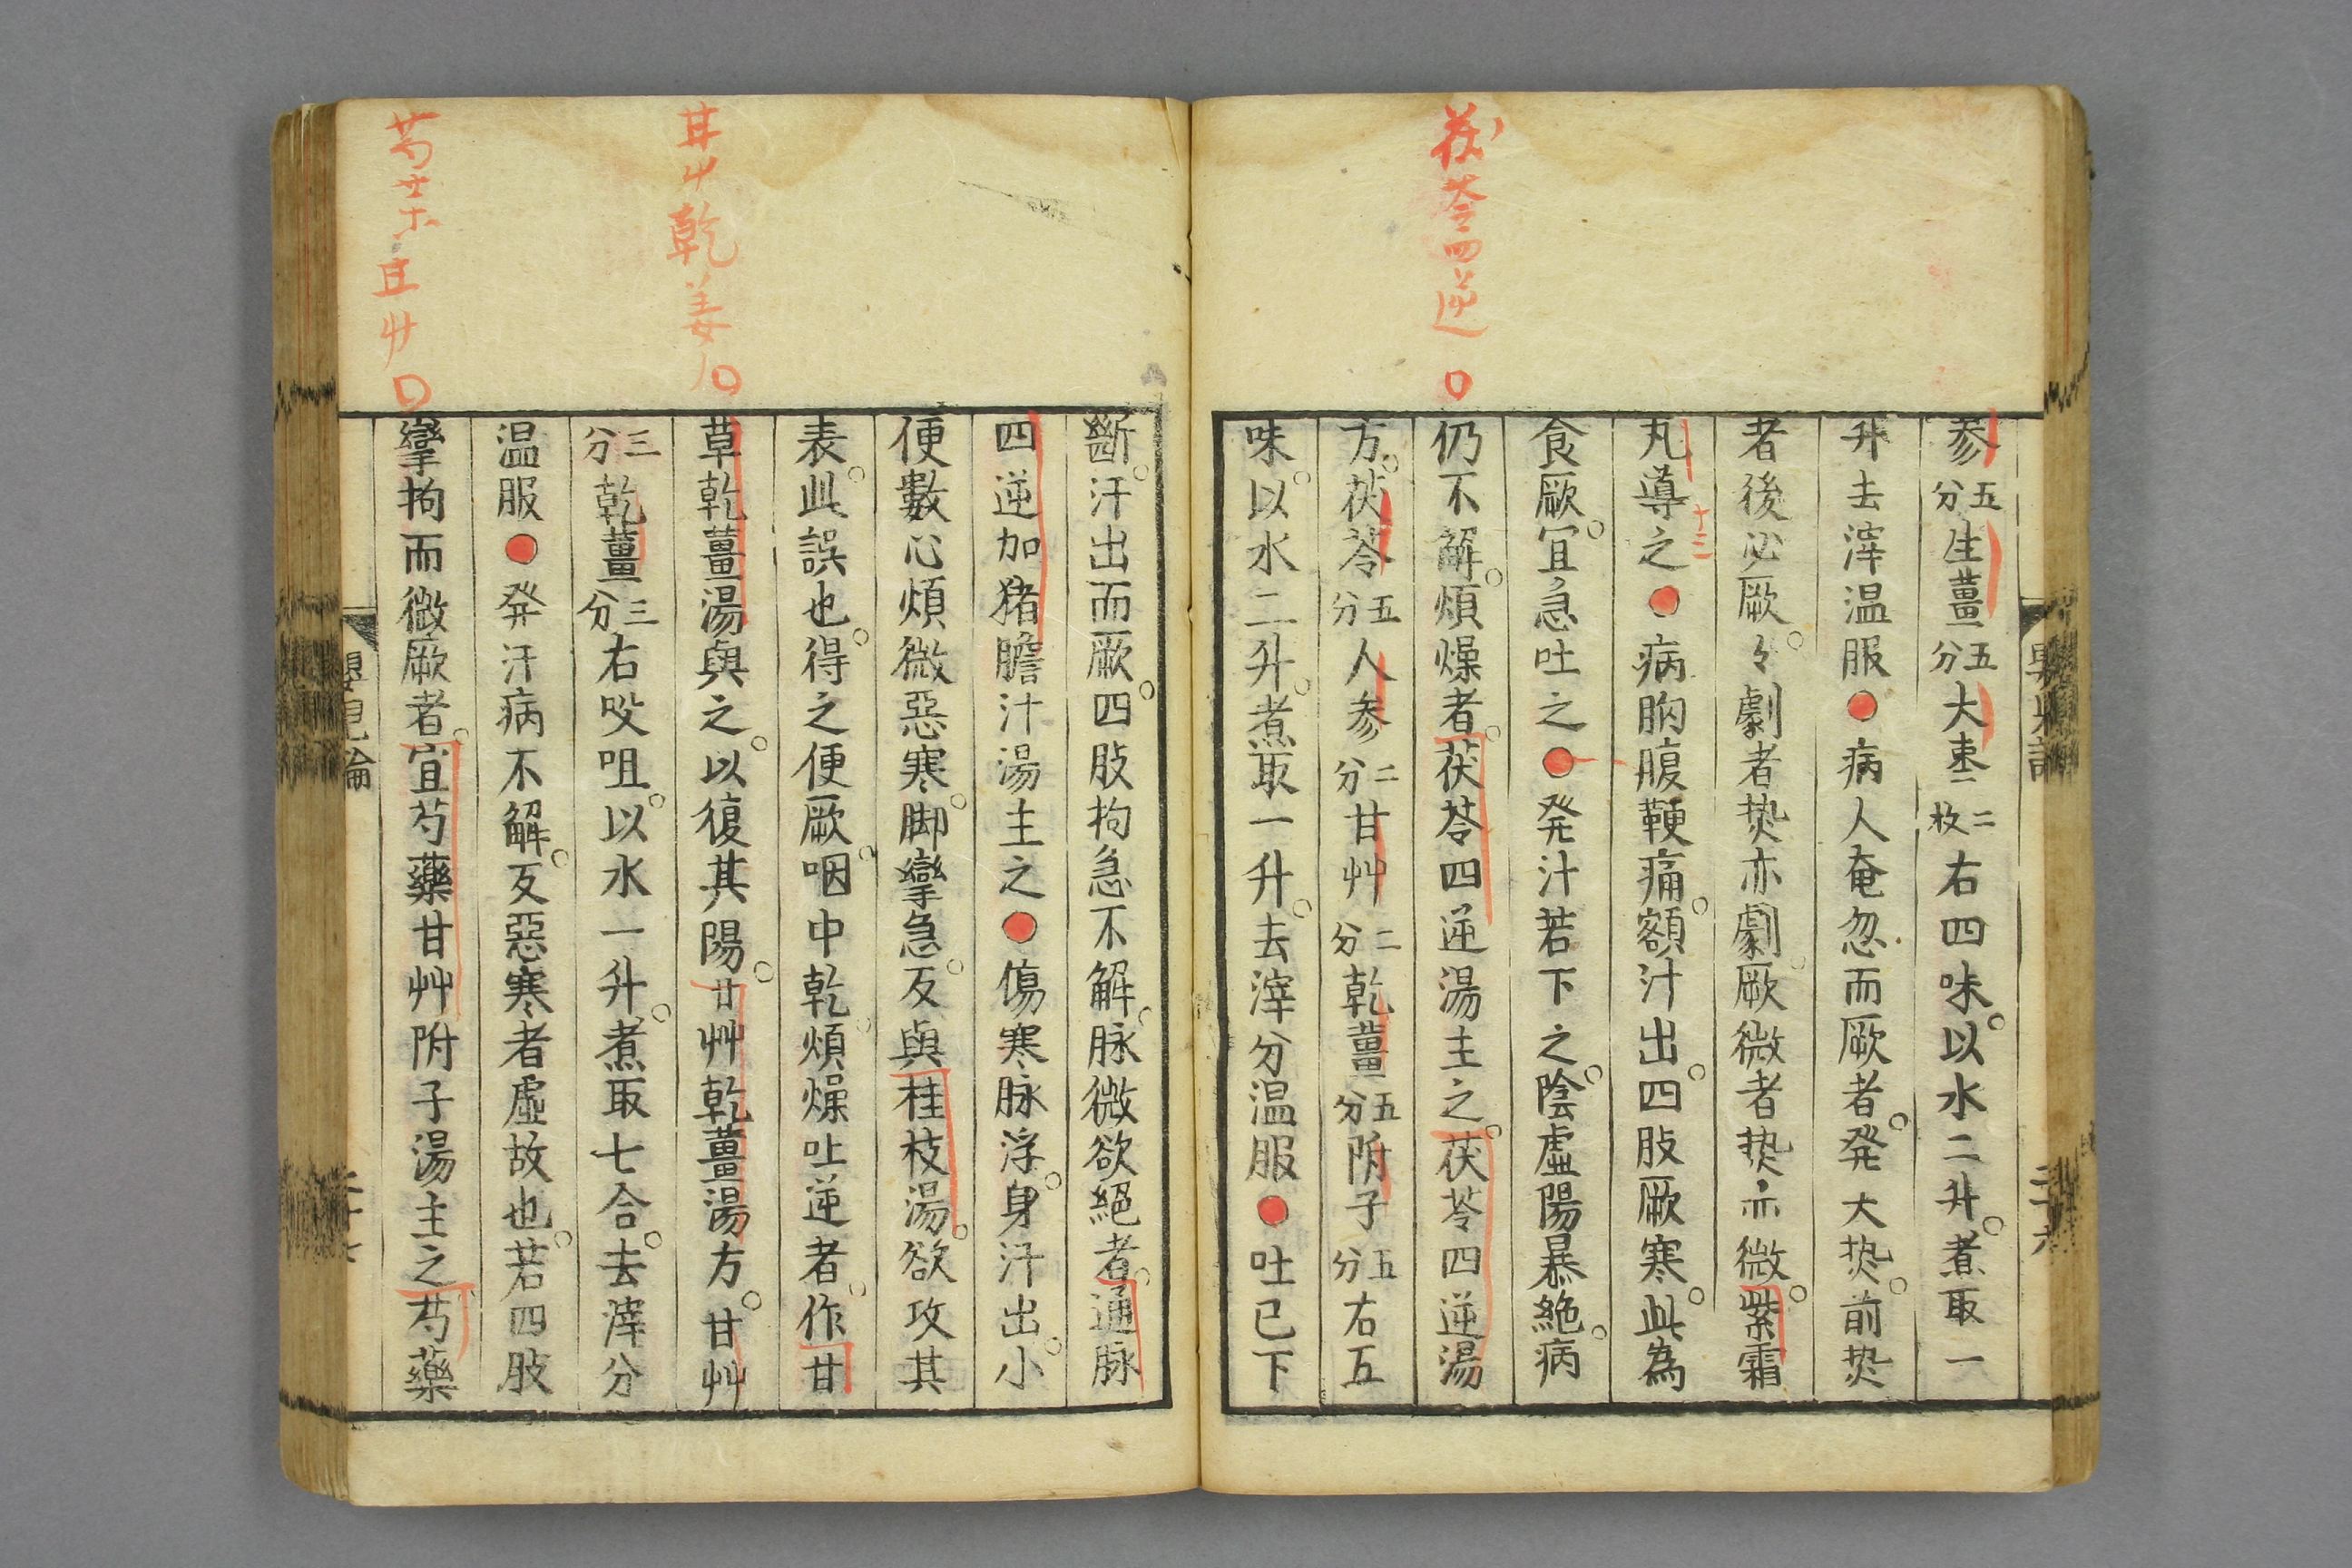 茯苓四逆
参五分生薑五分大枣二枚右四味以水二升煮取一
升去滓温服●病人奄忽而厥者発大𤍠前𤍠
者後必厥々劇者𤍠亦劇厥微者𤍠亦微紫霜
丸導之●病胸腹鞕痛額汁出四肢厥寒此為
十三
食厥宜急吐之●発汁若下之陰虚陽暴絶病
仍不解煩燥者茯苓四逆湯主之茯苓四逆湯
方茯苓五分人参二分甘艸二分乾薑五分附子五分右五
味以水二升煮取一升去滓分温服●吐已下
甘艸乾姜
芍薬甘艸
斷汗出而厥四肢拘急不解脉微欲絕者通脉
四逆加猪膽汁湯主之●傷寒脉浮身汗出小
便數心煩微惡寒脚攣急反與桂枝湯欲攻其
表此誤也得之便厥咽中乾煩燥吐逆者作甘
草乾薑湯與之以復其陽甘艸乾薑湯方甘艸
三分乾薑三分右㕮咀以水一升煮取七合去滓分
温服●発汗病不解反惡寒者虛故也若四肢
攣拘而微厥者宜芍藥甘艸附子湯主之芍藥